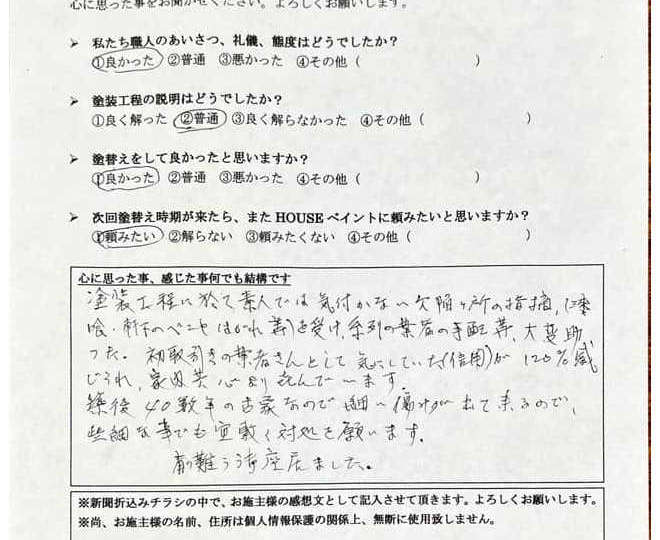 心に思った事をお聞かせください。よろしくお願いします。
➤ 私たち職人のあいさつ、礼儀、態度はどうでしたか？
①良かった ②普通 ③悪かった ④その他（　　　　　　　）
➤ 塗装工程の説明はどうでしたか？
①良く解った ②普通 ③良く解らなかった ④その他（　　　　　　　）
➤ 塗替えをして良かったと思いますか？
①良かった ②普通 ③悪かった ④その他（　　　　　　　）
➤ 次回塗替え時期が来たら、また HOUSE ペイントに頼みたいと思いますか？
①頼みたい ②解らない ③頼みたくない ④その他（　　　　　　　）
心に思った事、感じた事何でも結構です
塗装工程に於て素人では気付かない欠陥ヶ所の指摘，(漆
喰・軒下のベニヤはがれ等)を受け，系列の業者の手配等、大変助
かった。初取引きの業者さんとして気にしていた(信用)が120％感
じられ，家内共心より喜んでいます。
築後40数年の古家なので細い傷みが出て来るので、
些細な事でも宜敷く対処を願います。
有難うう御座居ました。
※新聞折込みチラシの中で、お施主様の感想文として記入させて頂きます。よろしくお願いします。
※尚、お施主様の名前、住所は個人情報保護の関係上、無断に使用致しません。